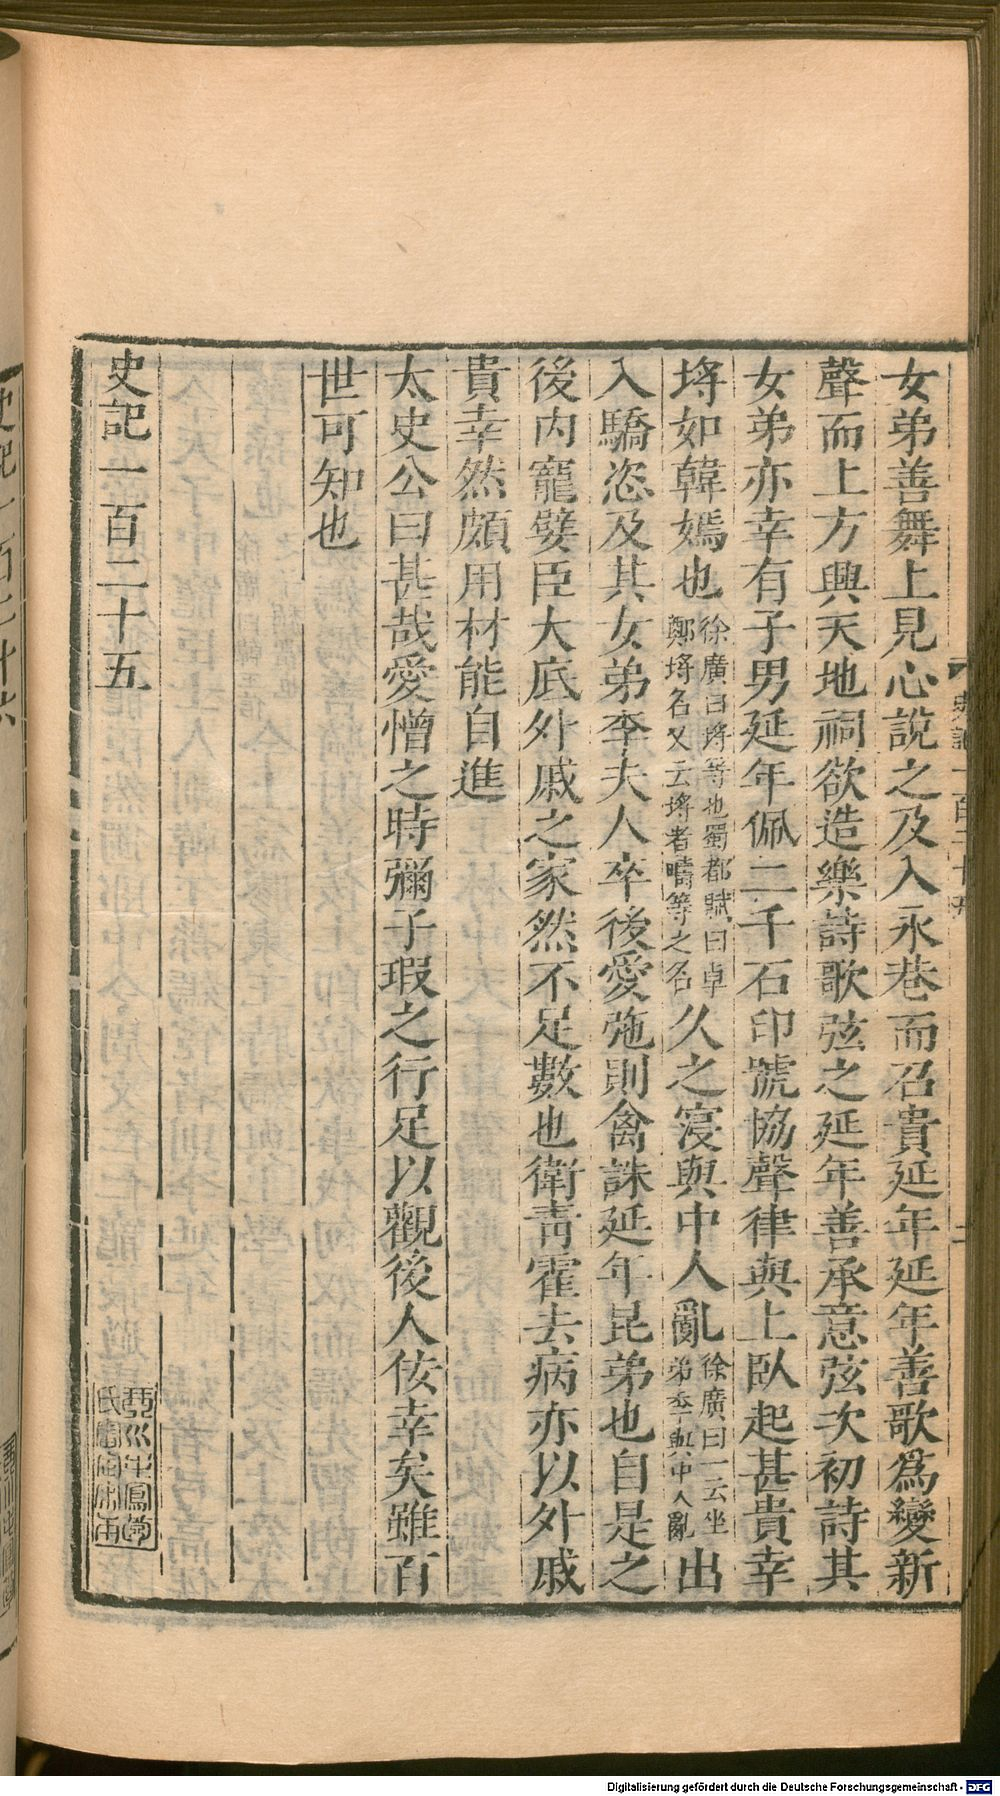 女弟善舞上見心說之及入永巷而召貴延年延年善歌爲變新
聲而上方興天地祠欲造樂詩歌弦之延年善承意弦次初詩其
女弟亦幸有子男延年佩二千石印號協聲律與上臥起甚貴幸
埒如韓嫣也徐廣曰埒等也蜀都賦曰卓鄭埒名又云埒者疇等之名久之寖與中人亂徐廣曰一云坐弟季與中人亂出
入驕恣及其女弟李夫人卒後愛弛則禽誅延年昆弟也自是之
後內寵嬖臣大底外戚之家然不足數也衛靑霍去病亦以外戚
貴幸然頗用材能自進
太史公曰甚哉愛憎之時彌子瑕之行足以觀後人佞幸矣雖百
世可知也
史記一百二十五
史記一百二十五
二
Digitalisierung gefördert durch die Deutsche Forschungsgemeinschaft - DFG